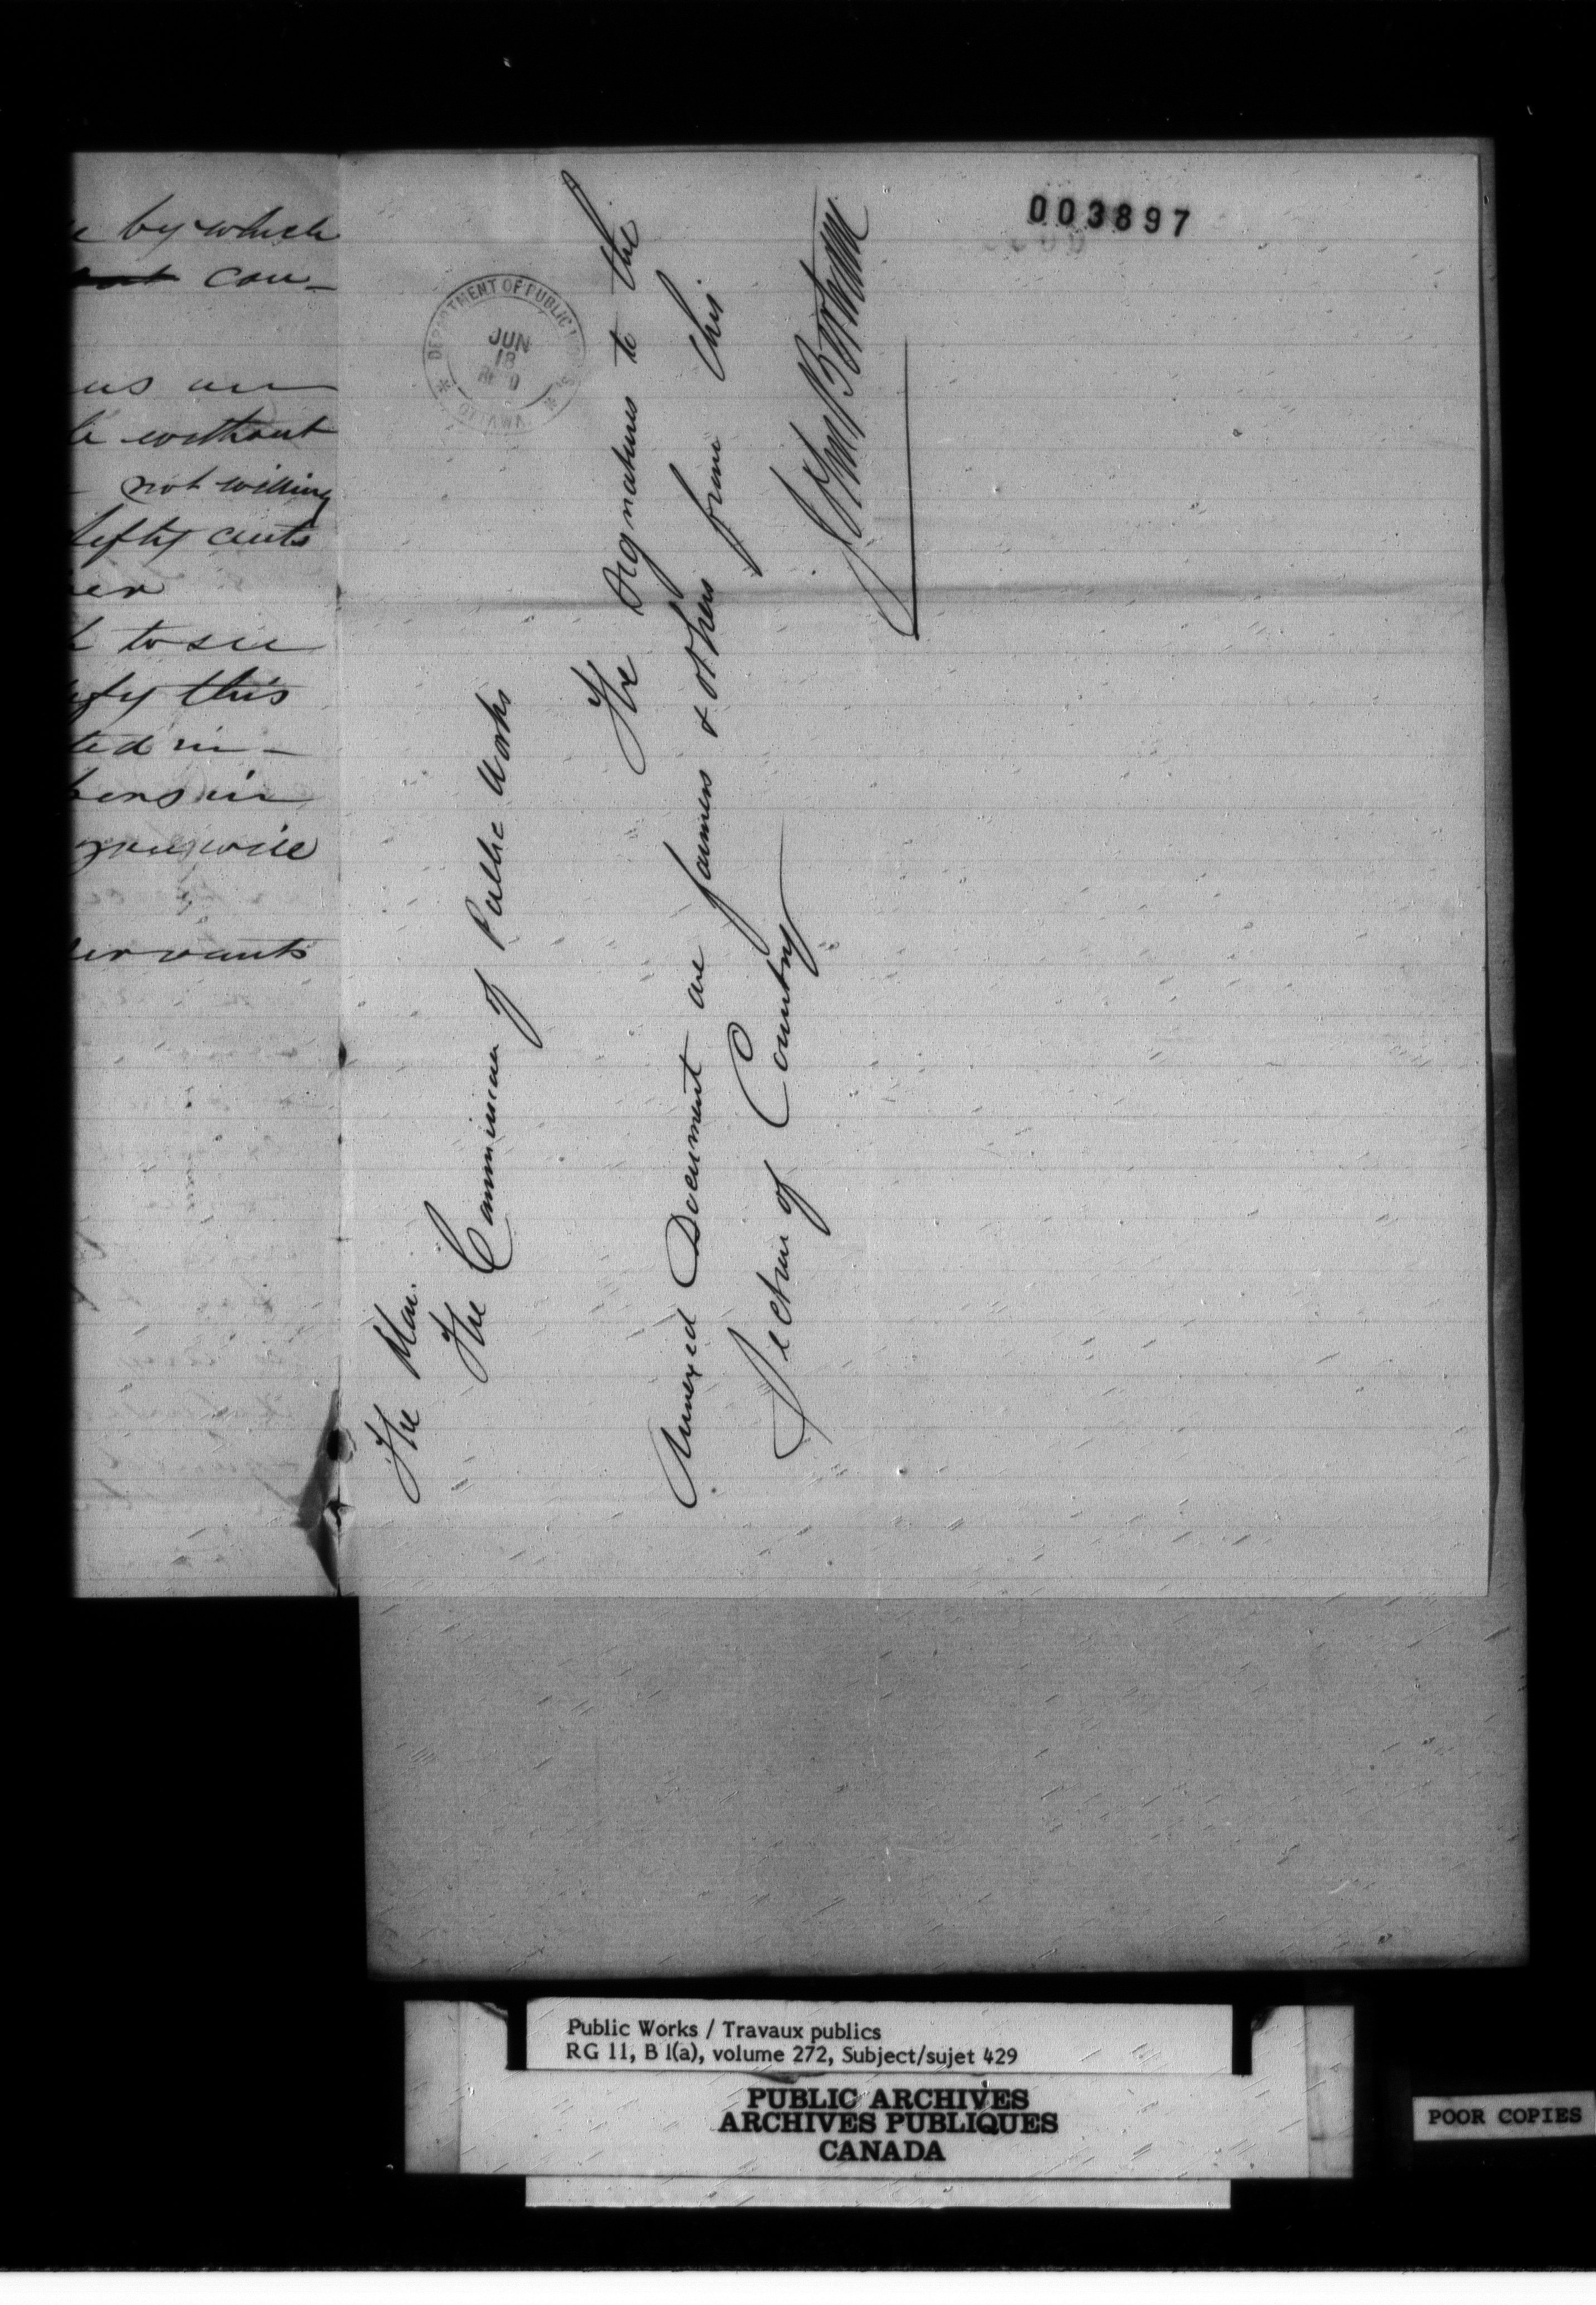 by which
con-
us an
le without
not willing
fifty cents
er
to see
fy this
ted in-
you will
servants
003897
DEPARTMENT OF PUBLIC WORKS
JUN
18
REC'D
OTTAWA
The Hon.
The Commissioner of Public Works
The Signatures to the
Annexed Document are farmers & others from this
Section of Country
John Bertram
Public Works / Travaux publics
RG 11, B 1(a), volume 272, Subject/sujet 429
PUBLIC ARCHIVES
ARCHIVES PUBLIQUES
CANADA
POOR COPIES